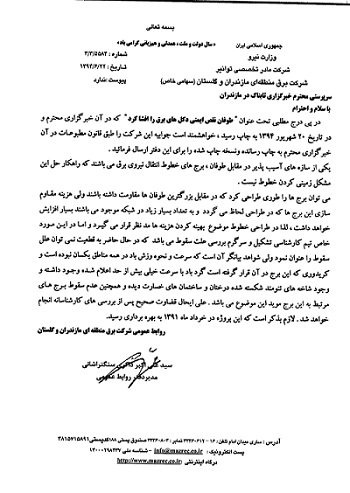 بسمه تعالی
«سال دولت و ملت، همدلی و همزبانی گرامی باد»
جمهوری اسلامی ایران
وزارت نیرو
شرکت مادر تخصصی توانیر
شرکت برق منطقه‌ای مازندران و گلستان (سهامی خاص)
شماره: ۳/۳/۵۵۸۲
تاریخ: ۱۳۹۴/۶/۲۲
پیوست: ندارد
سرپرستی محترم خبرگزاری تابناک در مازندران
با سلام و احترام
در پی درج مطلبی تحت عنوان " طوفان نقص ایمنی دکل های برق را افشا کرد " که در آن خبرگزاری محترم و
در تاریخ ۲۰ شهریور ۱۳۹۴ به چاپ رسید ، خواهشمند است جوابیه این شرکت را طبق قانون مطبوعات در آن
خبرگزاری محترم به چاپ رسانده ونسخه چاپ شده را برای این دفتر ارسال فرمائید .
یکی از سازه های آسیب پذیر در مقابل طوفان ، برج های خطوط انتقال نیروی برق می باشند که راهکار حل این
مشکل زمینی کردن خطوط نیست .
می توان برج ها را طوری طراحی کرد که در مقابل بزرگترین طوفان ها مقاومت داشته باشند ولی هزینه مقاوم
سازی این برج ها که در طراحی لحاظ می گردد و به تعداد بسیار زیاد در شبکه موجود می باشند بسیار افزایش
خواهد داشت ، لذا در طراحی خطوط موضوع بهینه کردن هزینه ها مد نظر قرار می گیرد و اما در این مورد
خاص تیم کارشناسی تشکیل و سرگرم بررسی علت سقوط می باشد که در حال حاضر به قطعیت نمی توان علل
سقوط را عنوان نمود ولی شواهد بیانگر آن است که سرعت و نحوه وزش باد در همه مناطق یکسان نبوده است و
کریدوری که این برج در آن قرار گرفته است گرد باد با سرعت خیلی بیش از حد اعلام شده وجود داشته و
وجود شاخه های تنومند شکسته شده درختان و ساختمان های خسارت دیده و همچنین عدم سقوط برج های
مرتبط به این برج موید این موضوع می باشد . علی ایحال قضاوت صحیح پس از بررسی های کارشناسانه انجام
خواهد شد . لازم بذکر است که این پروژه در خرداد ماه ۱۳۹۱ به بهره برداری رسید .
روابط عمومی شرکت برق منطقه ای مازندران و گلستان
سید علی اکبر
مدیر دفتر روابط عمومی
آدرس : ساری میدان امام تلفن :
پست الکترونیک : info@mazrec.co.ir
درگاه اینترنتی http://www.mazrec.co.ir